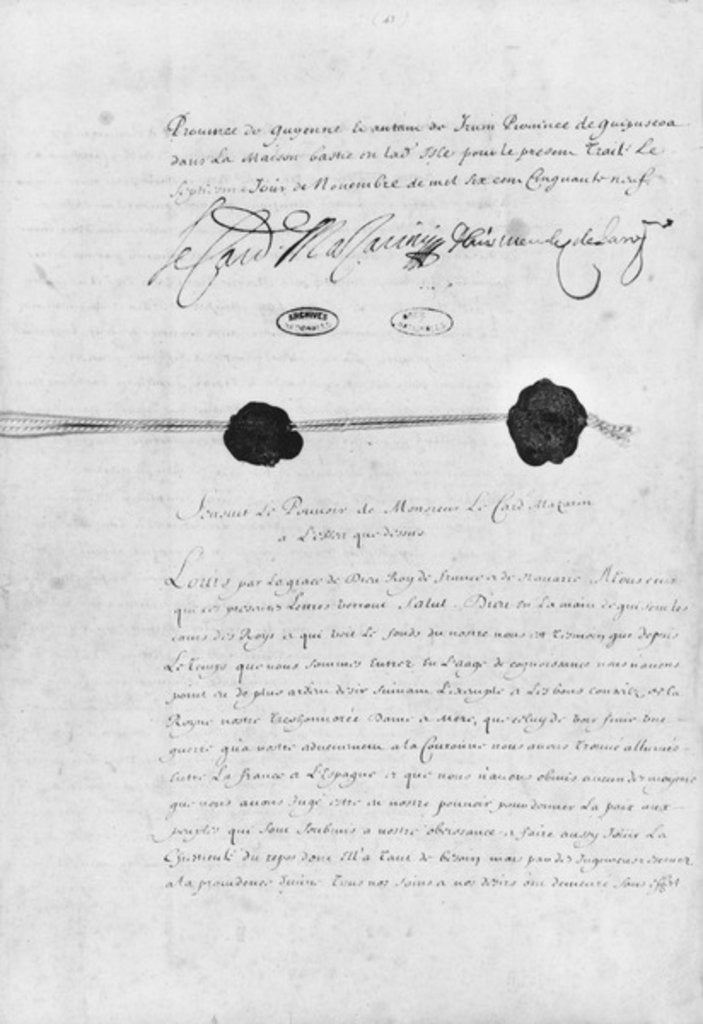 (43)
Prouince de Guyenne et autant de Irun Prouince de Guipuscoa
dans La Maison bastie en lad. Isle pour le present Traité Le
Septiesme Jour de Nouembre de mil six cens Cinquante neuf
Le Card. Mazarini
ARCHIVES NATIONALES
ARCHIVES NATIONALES
Sensuit Le Pouuoir de Monsieur Le Card Mazarin
a L'effet que dessus
Louis par La grace de Dieu Roy de france et de Nauarre A tous ceux
qui ces presentes Lettres verront Salut. Dieu en La main de qui sont les
cœurs des Roys et qui voit Le fonds du nostre nous est tesmoin que depuis
Le temps que nous sommes entrez en L'aage de cognoissance nous n'auons
point eu de plus ardent desir suiuant L'exemple et Les bons conseilz de la
Royne nostre treshonnorée Dame et Mere, que celuy de voir finir vne
guerre qu'a nostre aduenement a la Couronne nous auons trouué allumée
entre La france et L'Espagne et que nous n'auons obmis aucun des moyens
que nous auons Jugé estre en nostre pouuoir pour donner La paix aux
peuples qui sont soubmis a nostre obeissance et faire aussy Jouir La
Chrestienté du repos dont Ell'a tant de besoin mais par des Jugemens
a la prouidence diuine tous nos soins et nos desirs ont demeuré sans effet